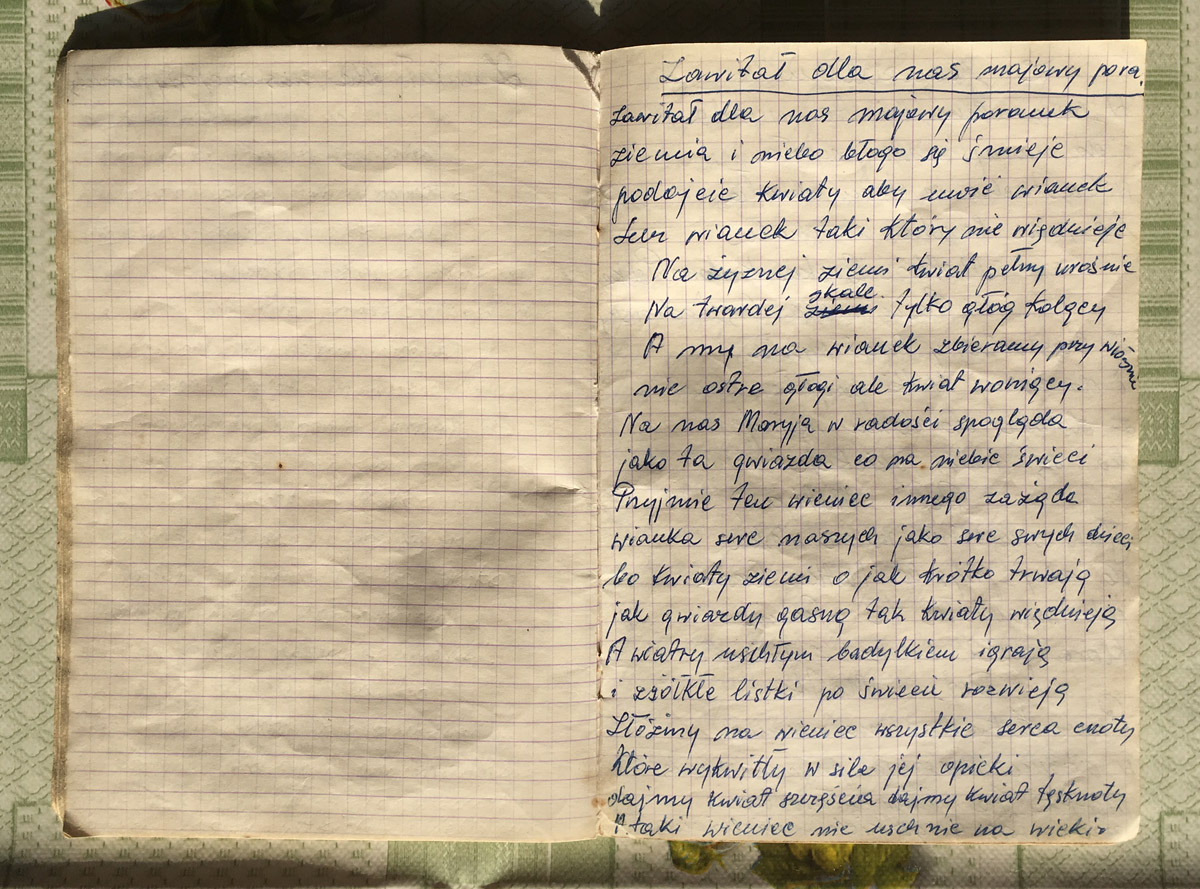 Zawitał dla nas majowy pora.
Zawitał dla nas majowy poranek
ziemia i niebo błogo się śmieje
podajcie kwiaty aby uwić wianek
Lecz wianek taki który nie więdnieje
Na żyznej ziemi kwiat pełny urośnie
Na twardej skale tylko głóg kolący
A my na wianek zbieramy przy wiośnie
nie ostre głogi ale kwiat woniący.
Na nas Maryja w radości spogląda
jako ta gwiazda co na niebie świeci
Przyjmie ten wieniec innego zażąda
wianka serc naszych jako serc swych dzieci
bo kwiaty ziemi o jak krótko trwają
jak gwiazdy gasną tak kwiaty więdnieją
A wiatry uschłym badylkiem igrają
i zżółkłe listki po świecie rozwieją
Złóżmy na wieniec wszystkie serca cnoty
Które wykwitły w sile jej opieki
dajmy kwiat szczęścia dajmy kwiat tęsknoty
A taki wieniec nie uschnie na wieki.